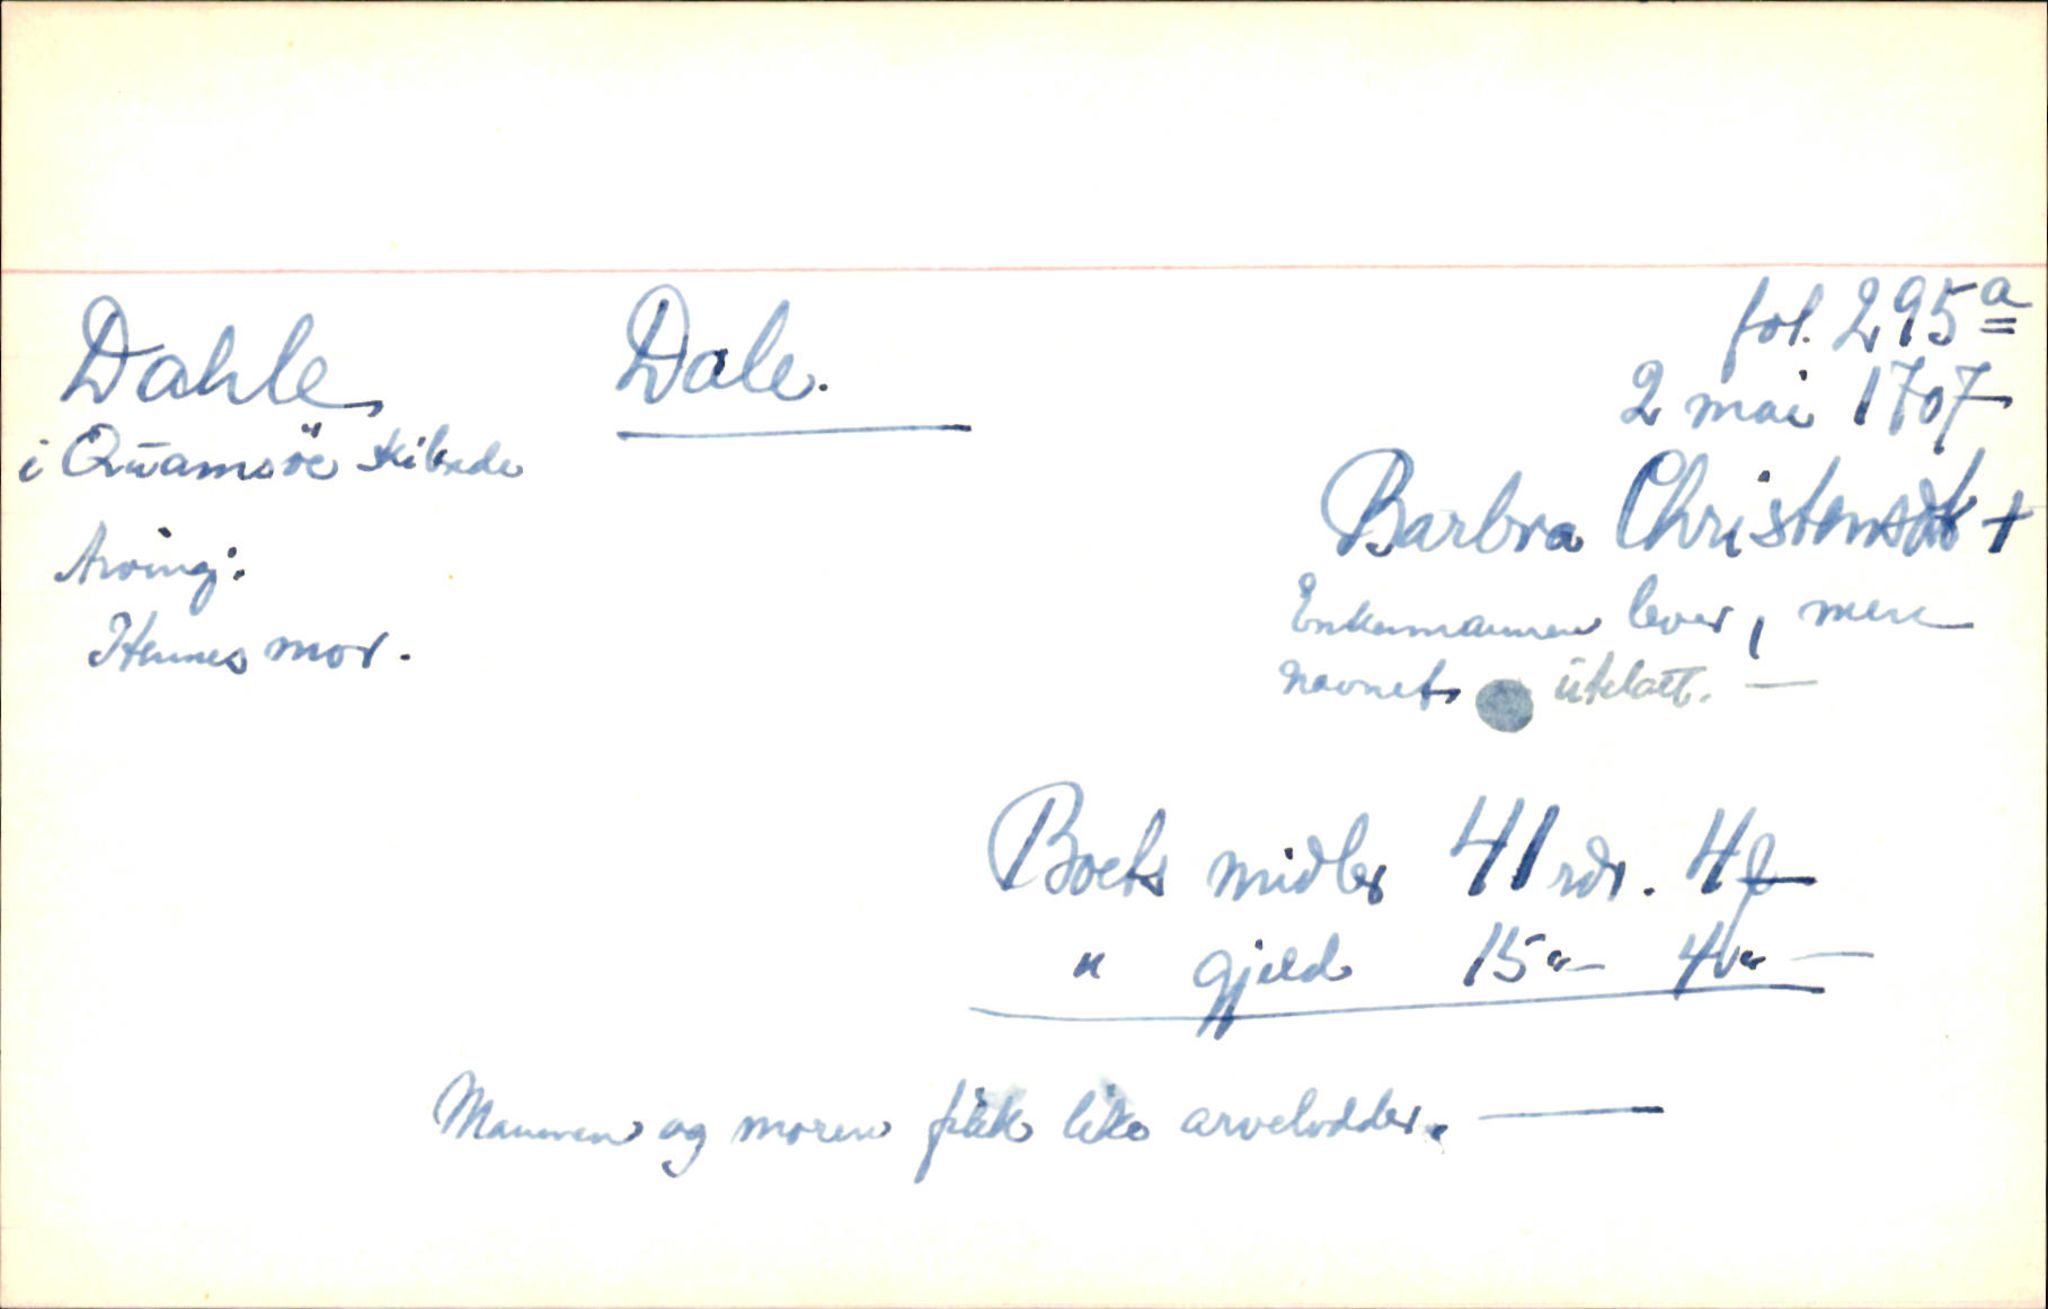 Dahle Dale. fol. 295a
i Quamsöe skibrede 2 mai 1707
Barbra Christensdt +
Arving:
Enkemannen lever, men
Hennes mor.
navnet utelatt. —
Boets midler 41 rdr. 4 ƒ
" gjeld 15 "— 4 " —
Mannen og moren fikk like arvelodder. —